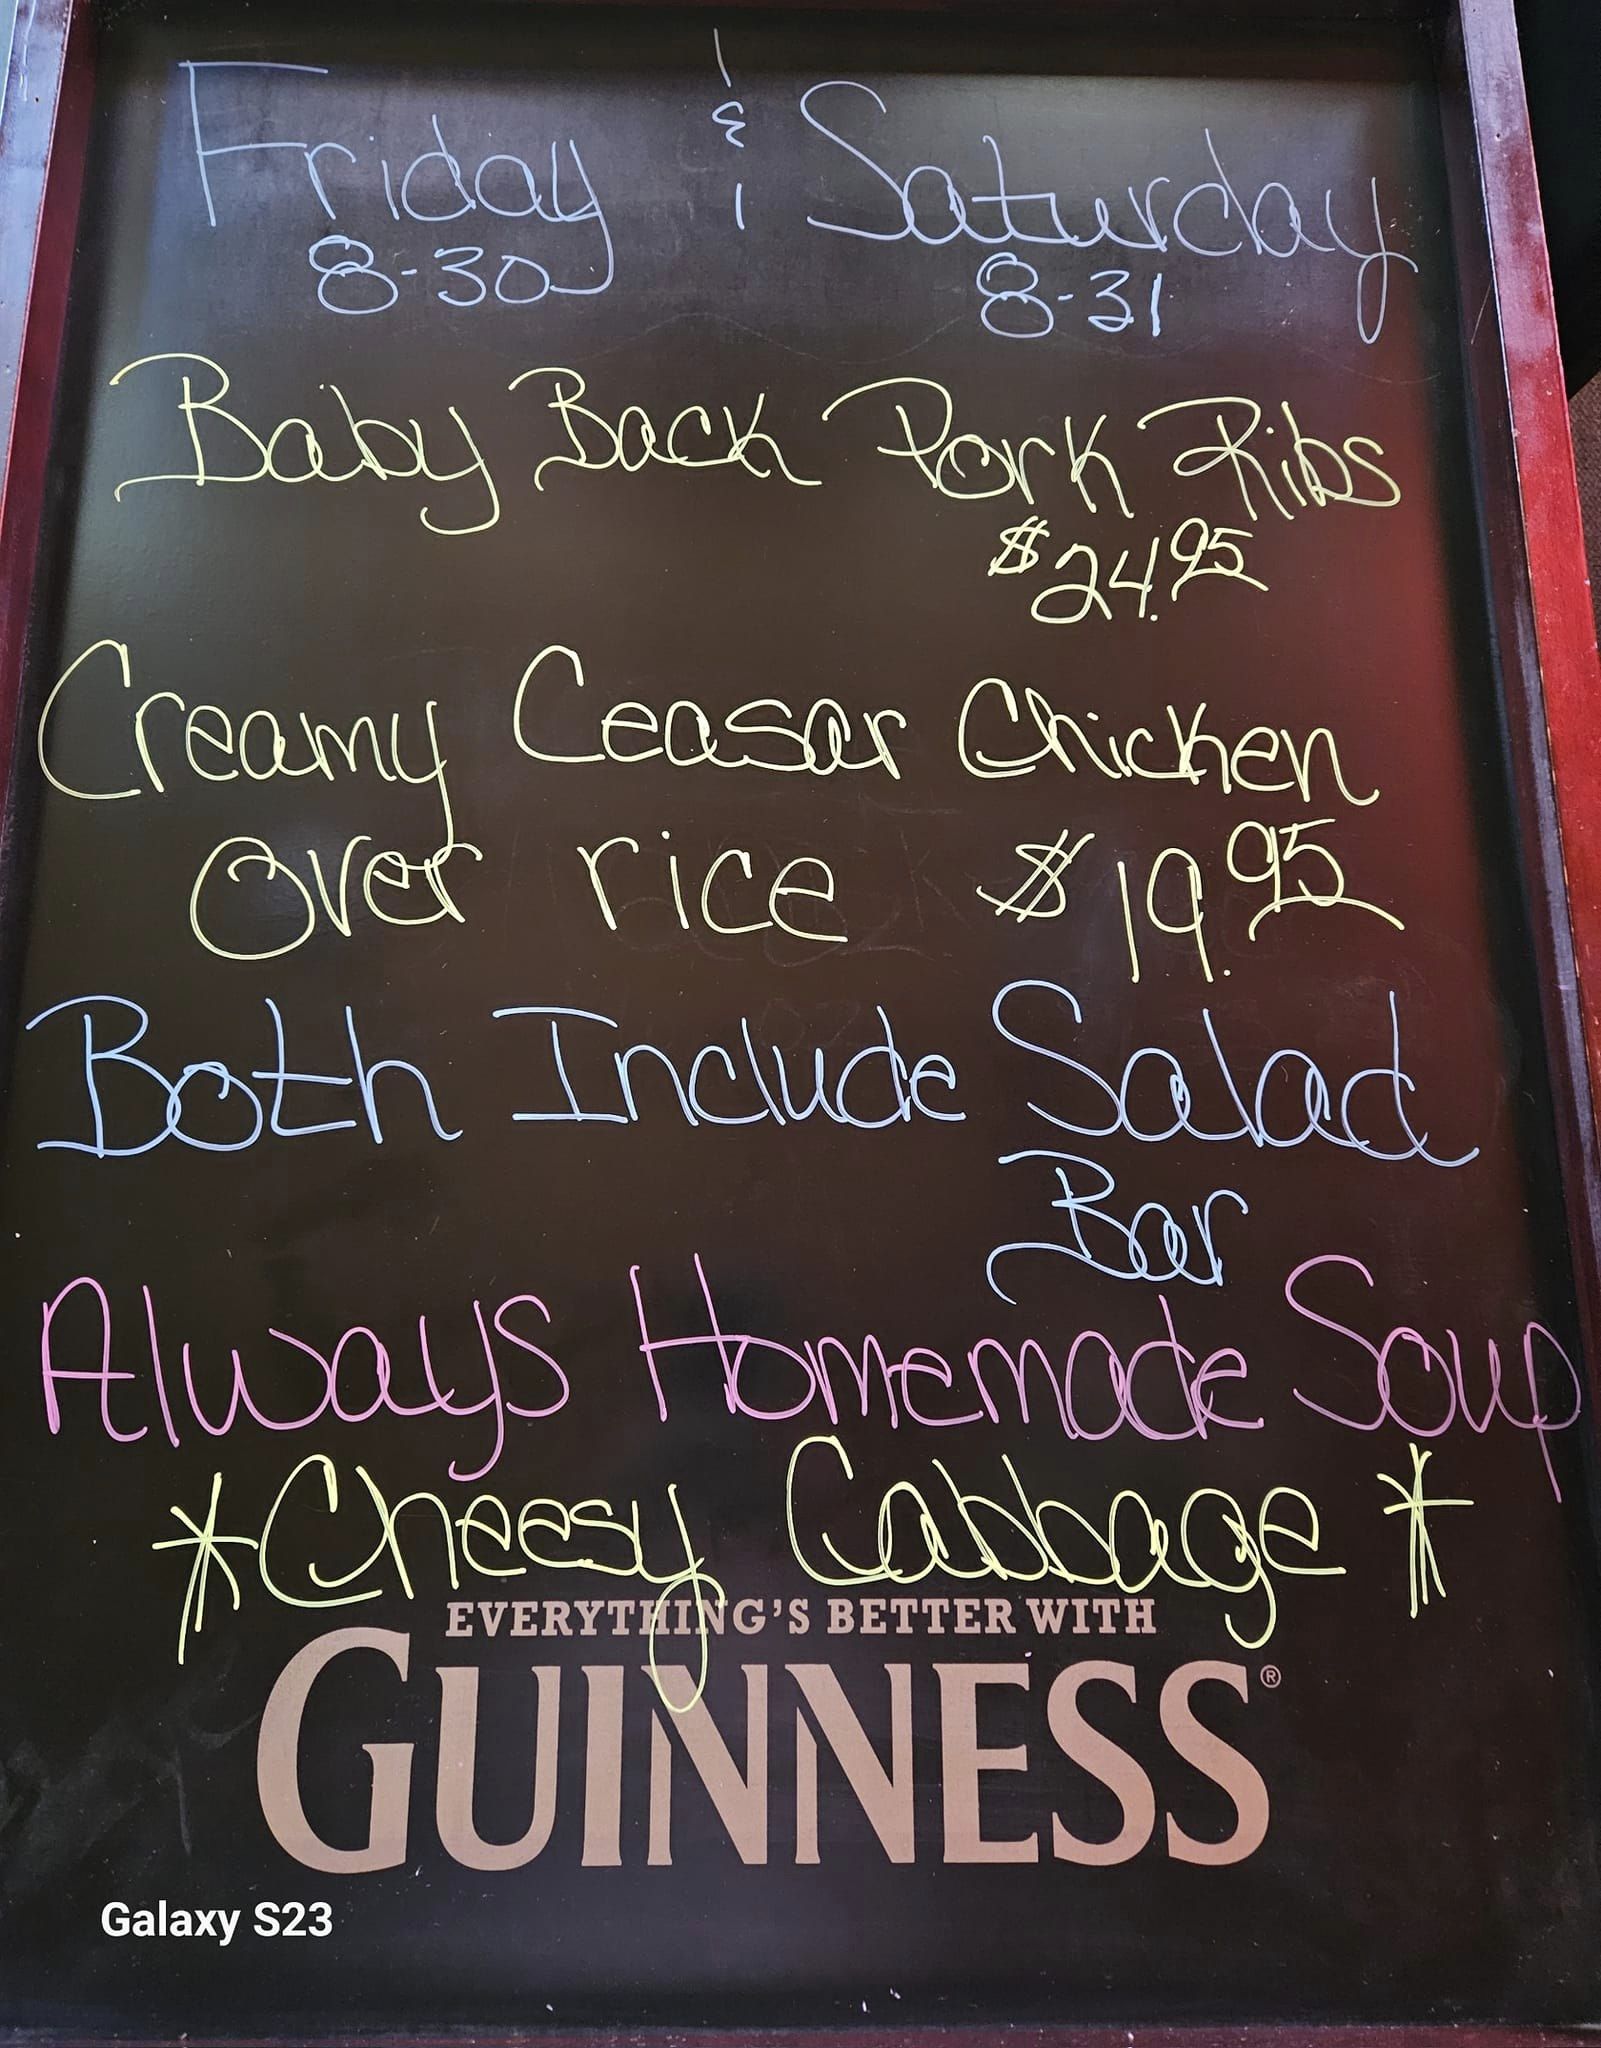 Friday & Saturday
8-30 8-31
Baby Back Pork Ribs
$24.95
Creamy Ceasar Chicken
Over rice $19.95
Both Include Salad
Bar
Always Homemade Soup
*Cheesy Cabbage*
EVERYTHING'S BETTER WITH
GUINNESS®
Galaxy S23